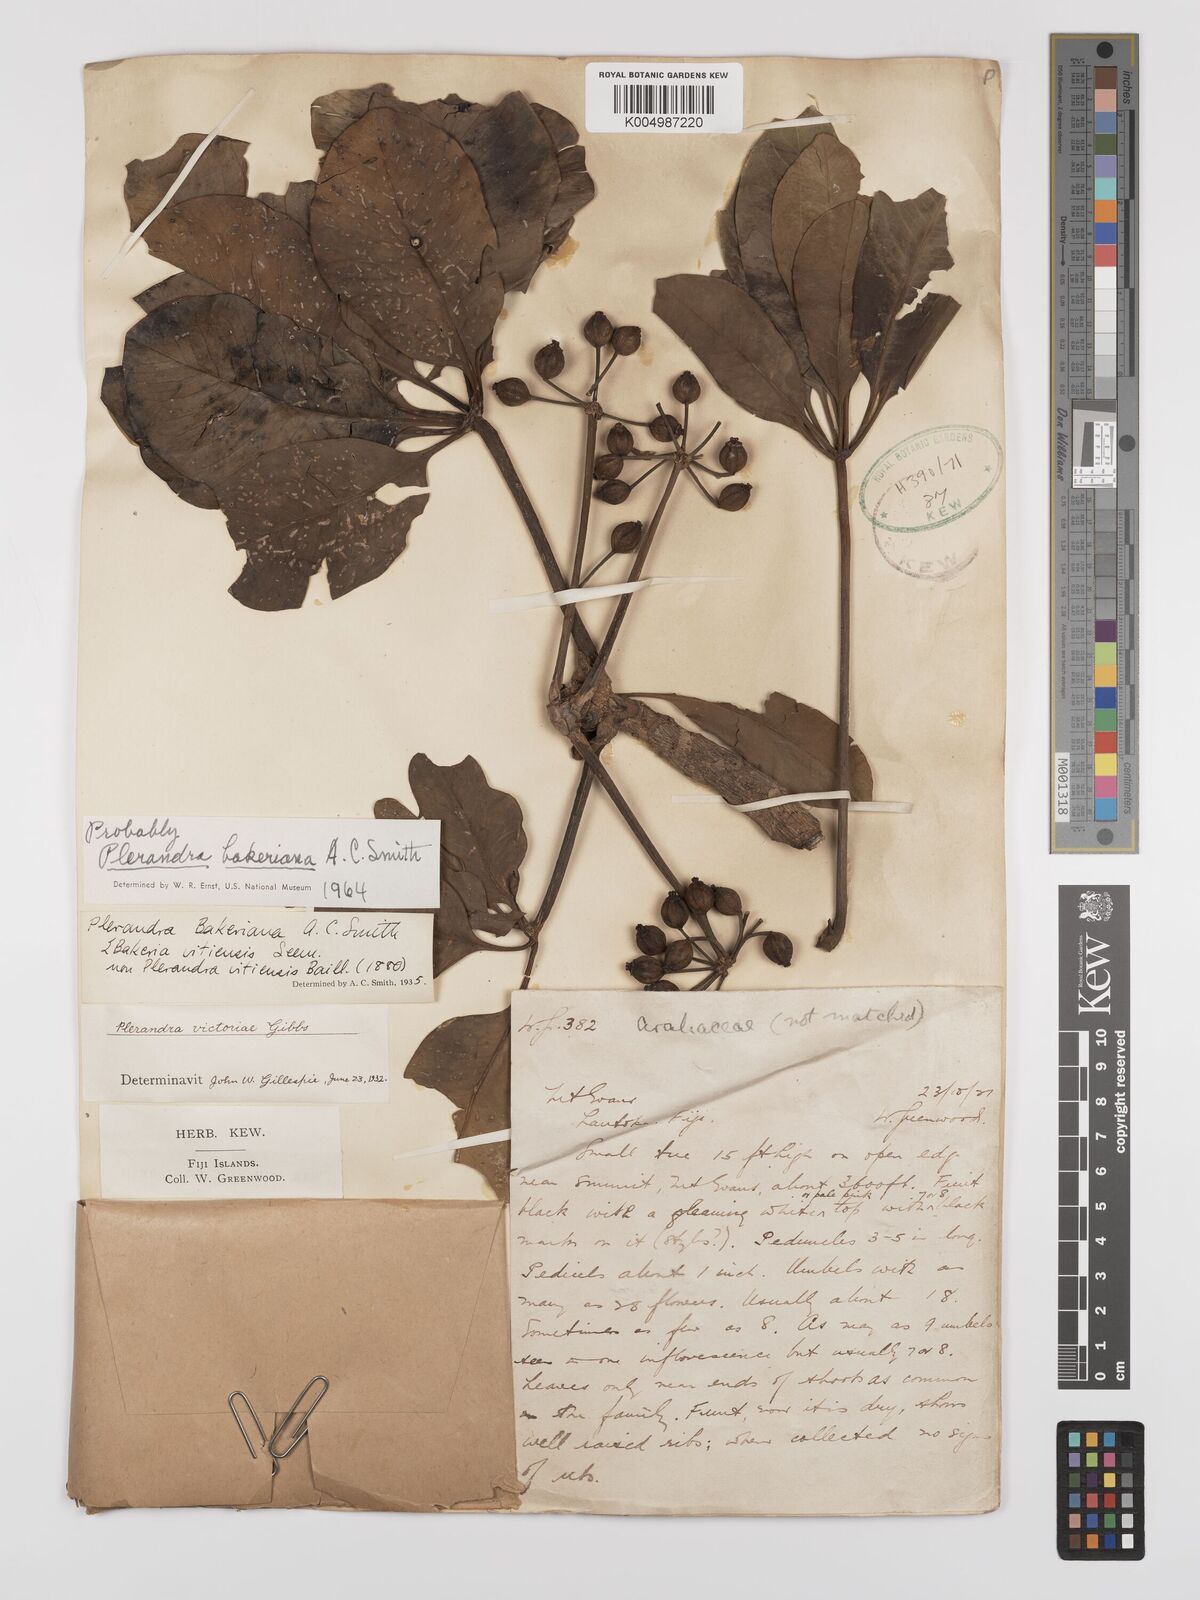 ROYAL BOTANIC GARDENS KEW
K004987220
P
ROYAL BOTANIC GARDENS
H390/71
87
KEW
KEW
Probably
Plerandra bakeriana A. C. Smith
Determined by W. R. Ernst, U.S. National Museum 1964
Plerandra Bakeriana A. C. Smith
Bakeria vitiensis Seem.
non Plerandra vitiensis Baill. (1880)
Determined by A. C. Smith, 1935.
Plerandra victoriae Gibbs
Determinavit John W. Gillespie, June 23, 1932.
HERB. KEW.
FIJI ISLANDS.
Coll. W. GREENWOOD.
382 Araliaceae (not matched)
Mt Evans
Lautoka. Fiji.
W. Greenwood.
Small tree 15 ft high on open edge
near summit, Mt Evans, about 3600 ft. Fruit
or pale pink 7 or 8
black with a gleaming white top with black
marks on it (styles?). Peduncles 3-5 in long.
Pedicels about 1 inch. Umbels with as
many as 28 flowers. Usually about 18.
Sometimes as few as 8. As many as 9 umbels
seen in one inflorescence but usually 7 or 8.
Leaves only near ends of shoots as common
in the family. Fruit, now it is dry, shows
well raised ribs; when collected no signs
of ribs.
inches
centimeters
Don Williams
M001318
Royal Botanic Gardens
Kew
copyright reserved
0 1 2 3 4 5 6 7 8 9 10
CM